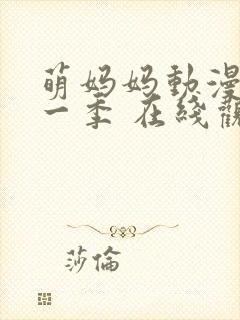 萌妈妈動漫
一季 在线觀
莎倫